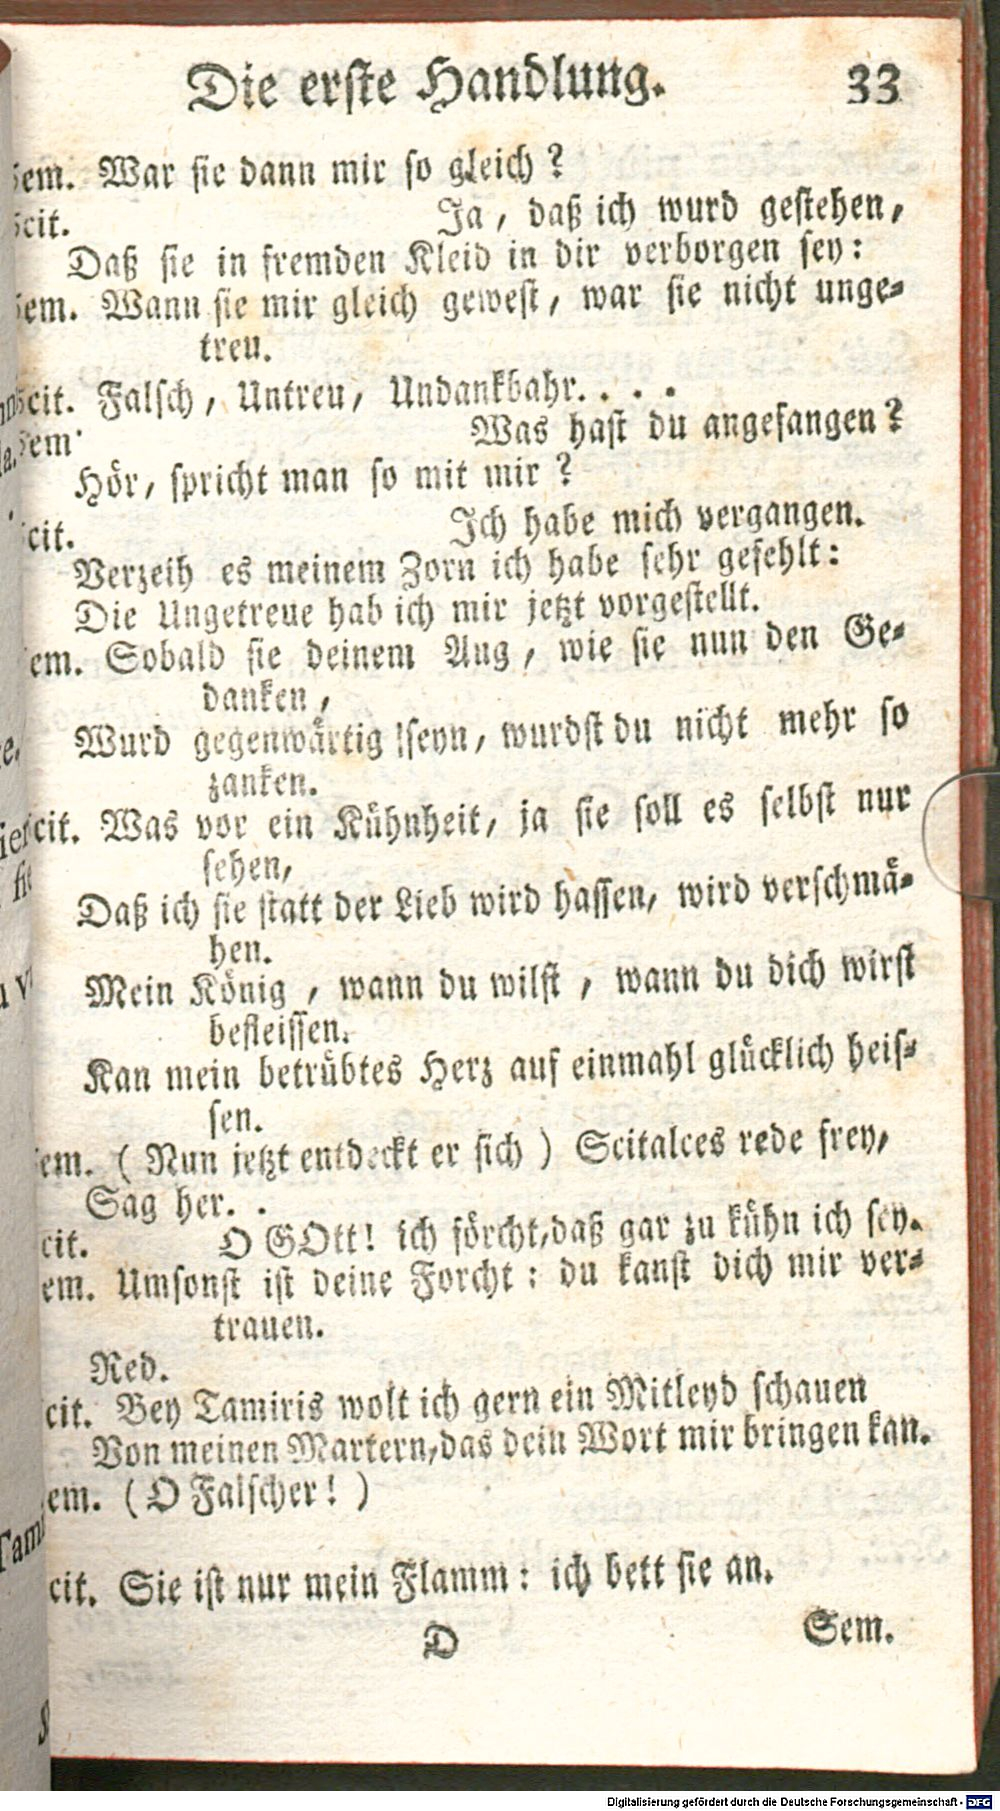 Die erste Handlung. 33
Sem. War sie dann mir so gleich ?
Scit. Ja, daß ich wurd gestehen,
Daß sie in fremden Kleid in dir verborgen sey:
Sem. Wann sie mir gleich gewest, war sie nicht unge-
treu.
Scit. Falsch, Untreu, Undankbahr. . . .
Sem. Was hast du angefangen?
Hör, spricht man so mit mir ?
cit. Ich habe mich vergangen.
Verzeih es meinem Zorn ich habe sehr gefehlt:
Die Ungetreue hab ich mir jetzt vorgestellt.
em. Sobald sie deinem Aug, wie sie nun den Ge-
danken,
Wurd gegenwärtig seyn, wurdst du nicht mehr so
zanken.
cit. Was vor ein Kühnheit, ja sie soll es selbst nur
sehen,
Daß ich sie statt der Lieb wird hassen, wird verschmä-
hen.
Mein König, wann du wilst, wann du dich wirst
befleissen.
Kan mein betrübtes Herz auf einmahl glücklich heis-
sen.
em. ( Nun jetzt entdeckt er sich ) Scitalces rede frey,
Sag her. .
cit. O GOtt! ich förcht, daß gar zu kühn ich sey.
em. Umsonst ist deine Forcht : du kanst dich mir ver-
trauen.
Red.
cit. Bey Tamiris wolt ich gern ein Mitleyd schauen
Von meinen Martern, das dein Wort mir bringen kan.
em. ( O Falscher! )
cit. Sie ist nur mein Flamm : ich bett sie an.
D Sem.
Digitalisierung gefördert durch die Deutsche Forschungsgemeinschaft - DFG